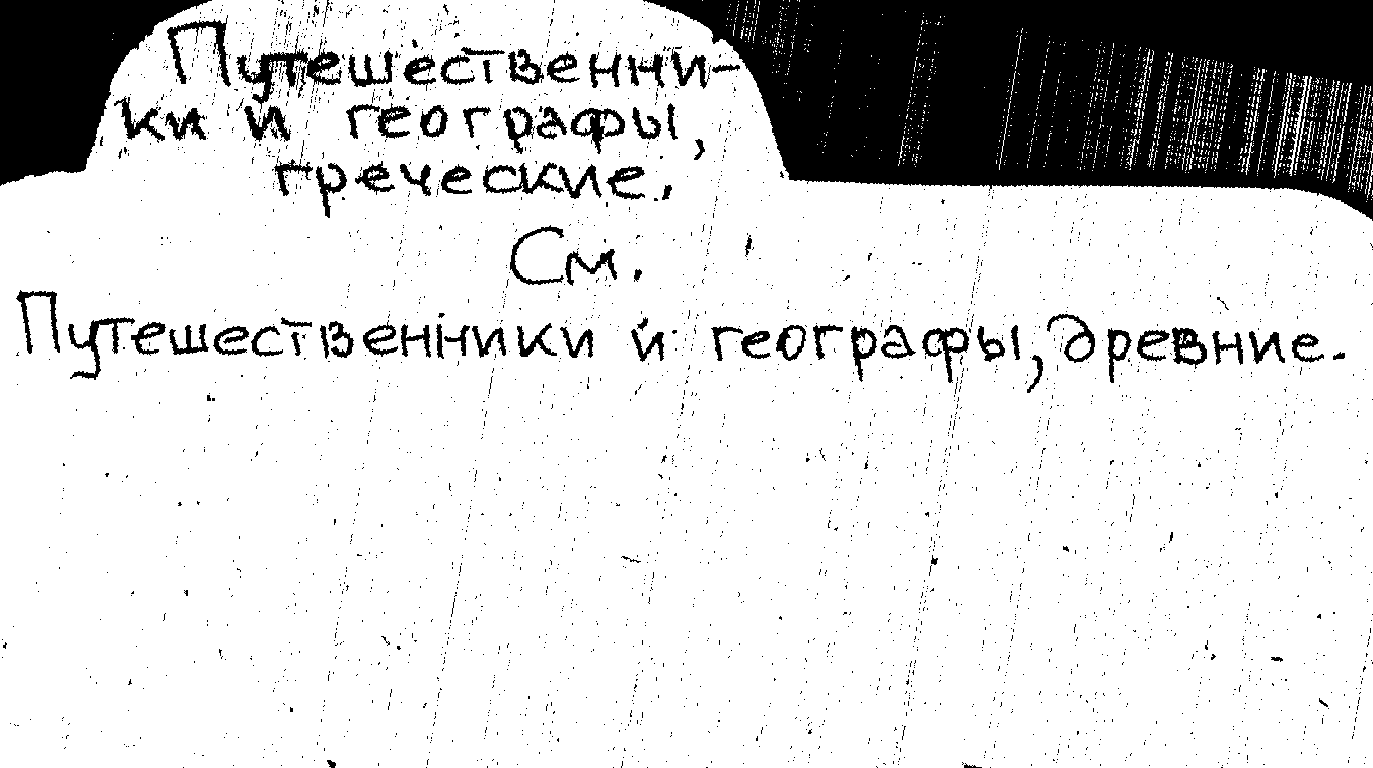 Путешественни-
ки и географы,
греческие.
См.
Путешественники и географы, древние.